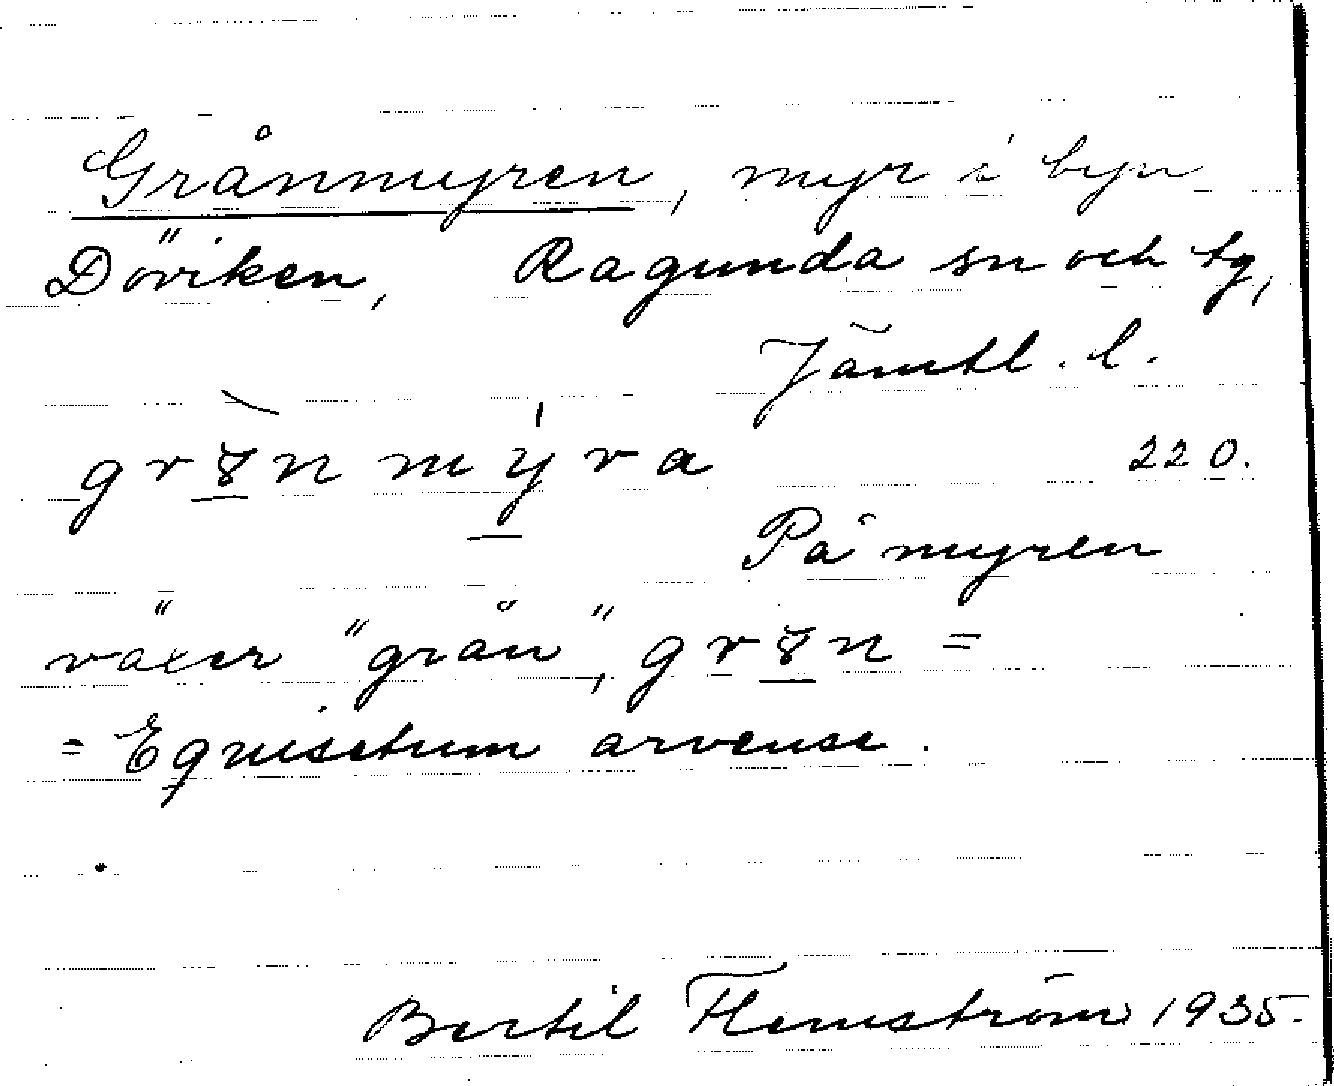 Grånmyren, myr i byn
Döviken, Ragunda sn och tg,
Jämtl. l.
220.
På myren
växer "grån",
= Equisetum arvense.
Bertil Flemström 1935.